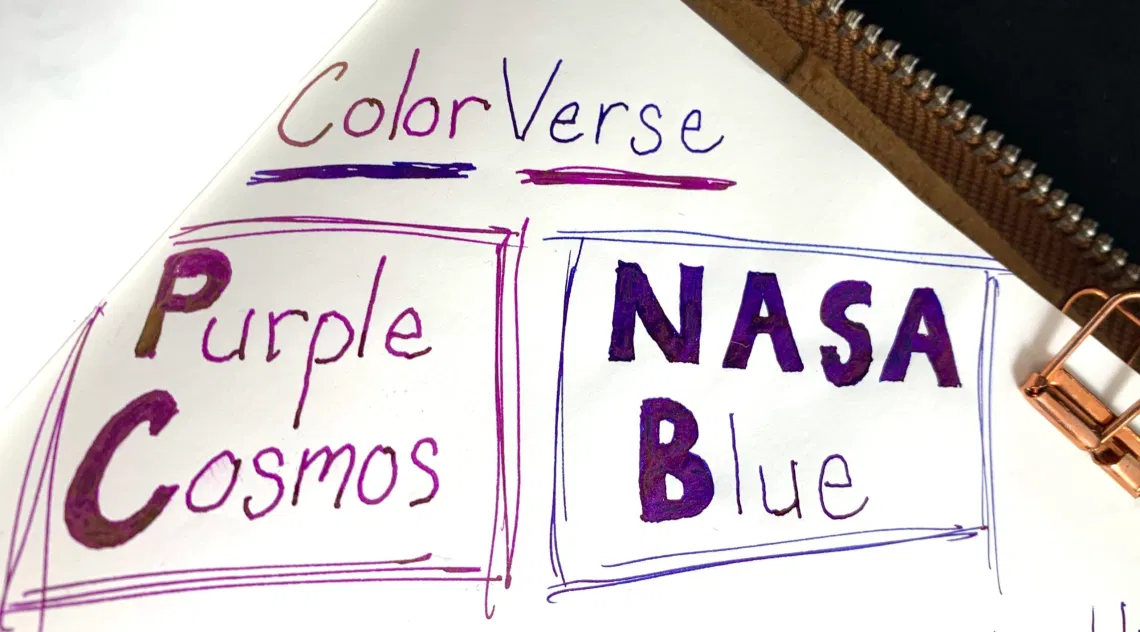 ColorVerse
Purple
Cosmos
NASA
Blue